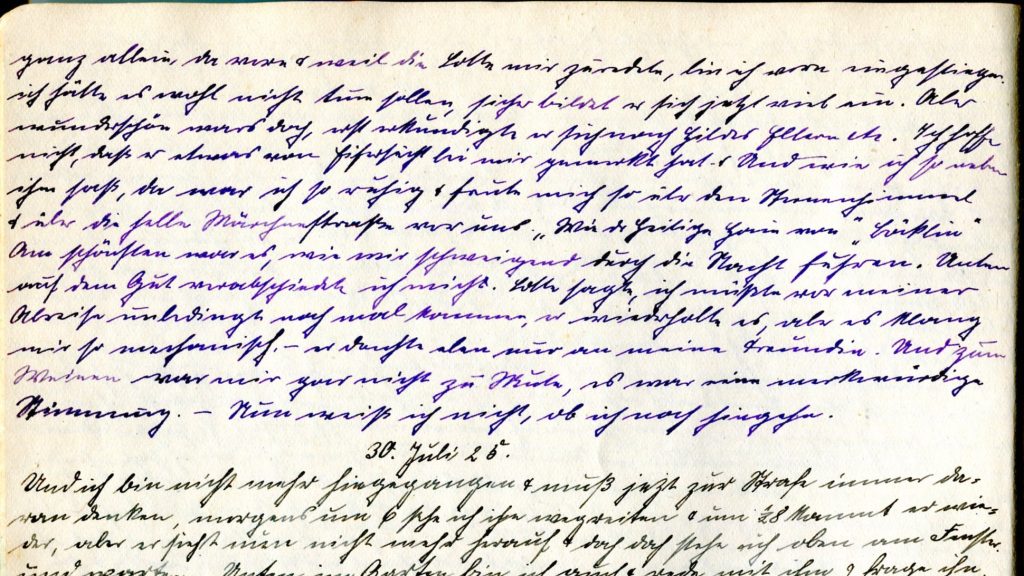 ganz allein, da vorn & weil die Lotte mir zuredete, bin ich vorn eingestiegen.
ich hätte es wohl nicht tun sollen, sicher bildet er sich jetzt viel ein. Aber
wunderschön wars doch, erst erkundigte er sich nach Hildes Eltern etc. Ich hoffe
nicht, daß er etwas von Eifersucht bei mir gemerkt hat. & Und wie ich so neben
ihm saß, da war ich so ruhig & freute mich so über den Sternenhimmel
& über die helle Märchenstraße vor uns „Wie der heilige Hain von" Böcklin"
Am schönsten war es, wie wir schweigend durch die Nacht fuhren. Unten
auf dem Gut verabschiedete ich mich. Lotte sagte, ich müßte vor meiner
Abreise unbedingt noch mal kommen, er wiederholte es, aber es klang
mir so mechanisch. – er dachte eben nur an meine Freundin. Und zum
Weinen war mir gar nicht zu Mute, es war eine merkwürdige
Stimmung. – Nun weiß ich nicht, ob ich noch hingehe.
30. Juli 25.
Und ich bin nicht mehr hingegangen & muß jetzt zur Strafe immer da-
ran denken, morgens um 6 sehe ich ihn wegreiten & um ½8 kommt er wie-
der, aber er sieht nun nicht mehr herauf & doch stehe ich oben am Fenster
und warte. Unten im Garten bin ich auch & rede mit ihm & frage ihn,